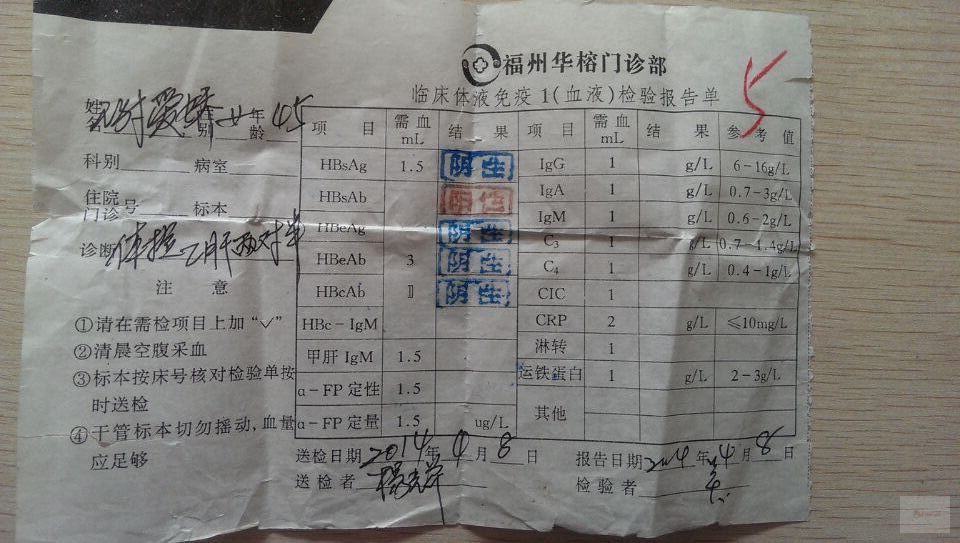 福州华榕门诊部
临床体液免疫1(血液)检验报告单
5
姓名 别 女 年龄 45
科别 病室
住院门诊号 标本
诊断 体检 乙肝两对半
注 意
①请在需检项目上加“✓”
②清晨空腹采血
③标本按床号核对检验单按
时送检
④干管标本切勿摇动,血量
应足够
项 目 需血mL 结 果 项 目 需血mL 结 果 参 考 值
HBsAg 1.5 阴性 IgG 1 g/L 6-16g/L
HBsAb 阳性 IgA 1 g/L 0.7-3g/L
HBeAg 阴性 IgM 1 g/L 0.6-2g/L
HBeAb 3 阴性 C3 1 g/L 0.7-1.4g/L
HBcAb 阴性 C4 1 g/L 0.4-1g/L
CIC 1
HBc-IgM CRP 2 g/L ≤10mg/L
甲肝IgM 1.5 淋转 1
α-FP定性 1.5 运铁蛋白 1 g/L 2-3g/L
α-FP定量 1.5 ug/L 其他
送检日期 2014年4月8日 报告日期 2014年4月8日
送检者 检验者